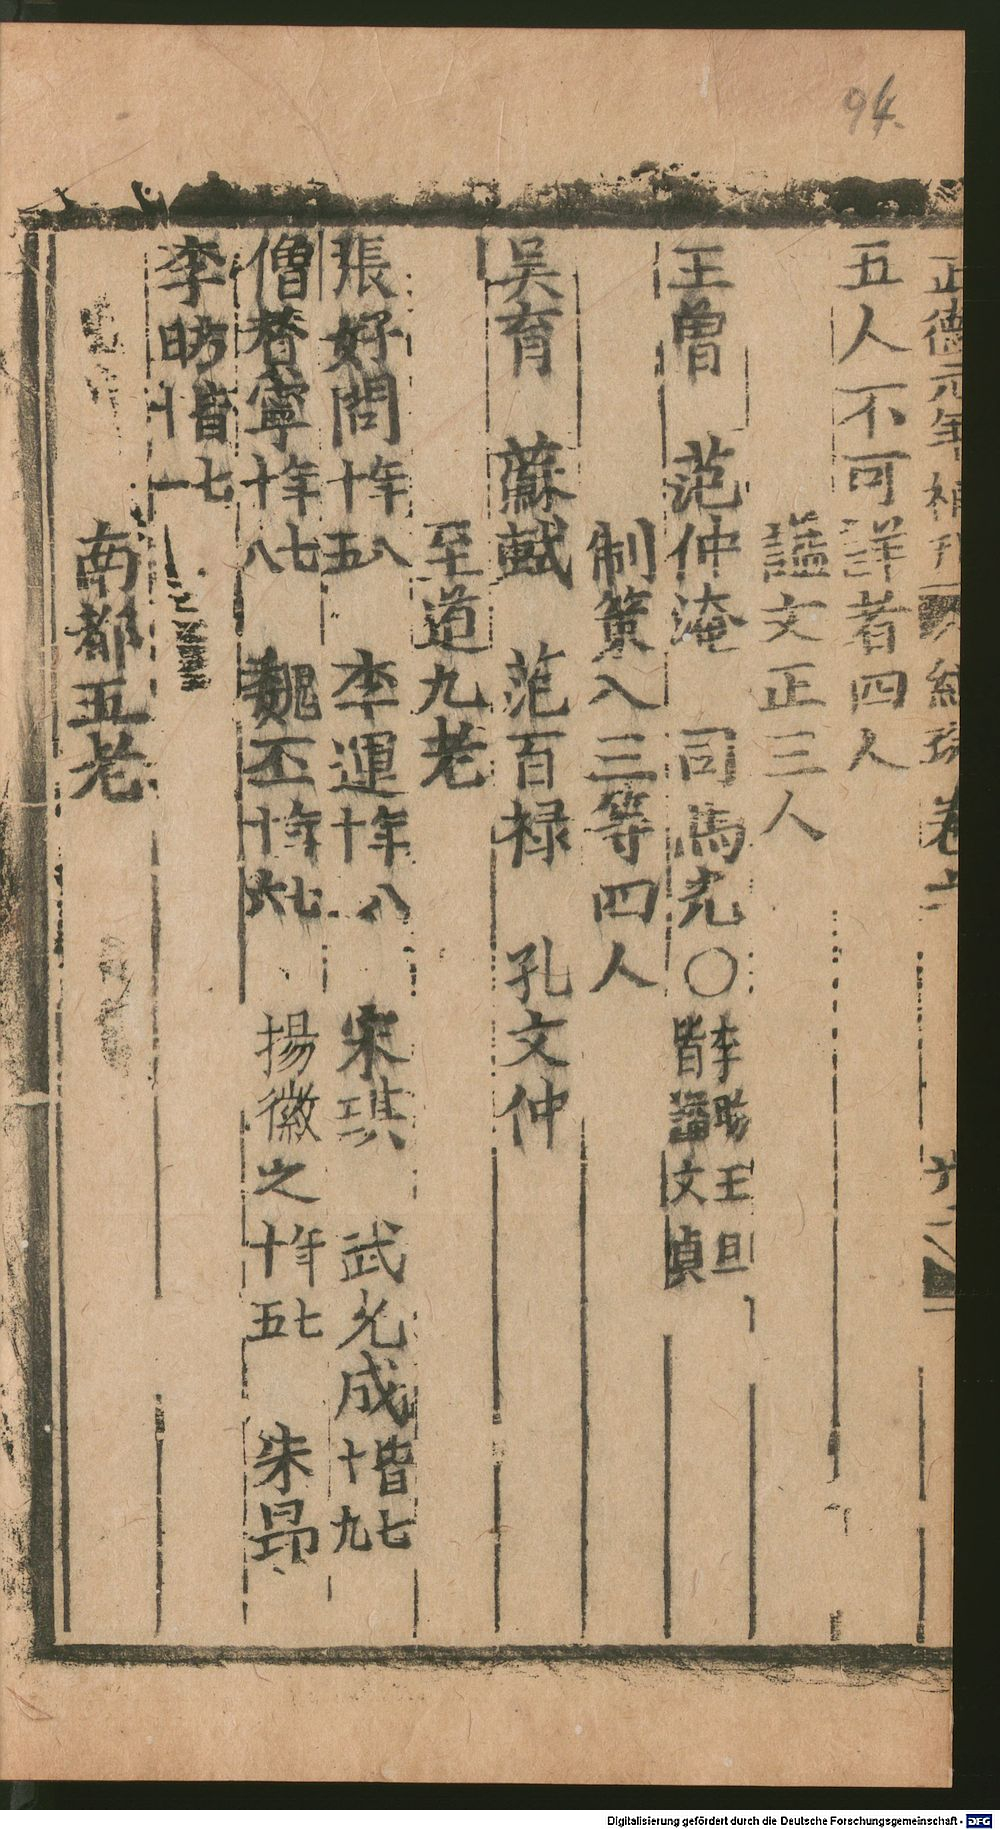 94.
正德元年補刊 卷六
五人不可詳者四人
謚文正三人
王曾 范仲淹 司馬光〇李昉王旦皆謚文貞
制策入三等四人
吳育 蘇軾 范百禄 孔文仲
至道九老
張好問年八十五 李運年八十 宋琪 武允成皆七十九
僧贊寧年七十八 魏丕年七十六 揚徽之年七十五 朱昂
李昉皆七十一
南都五老
Digitalisierung gefördert durch die Deutsche Forschungsgemeinschaft - DFG